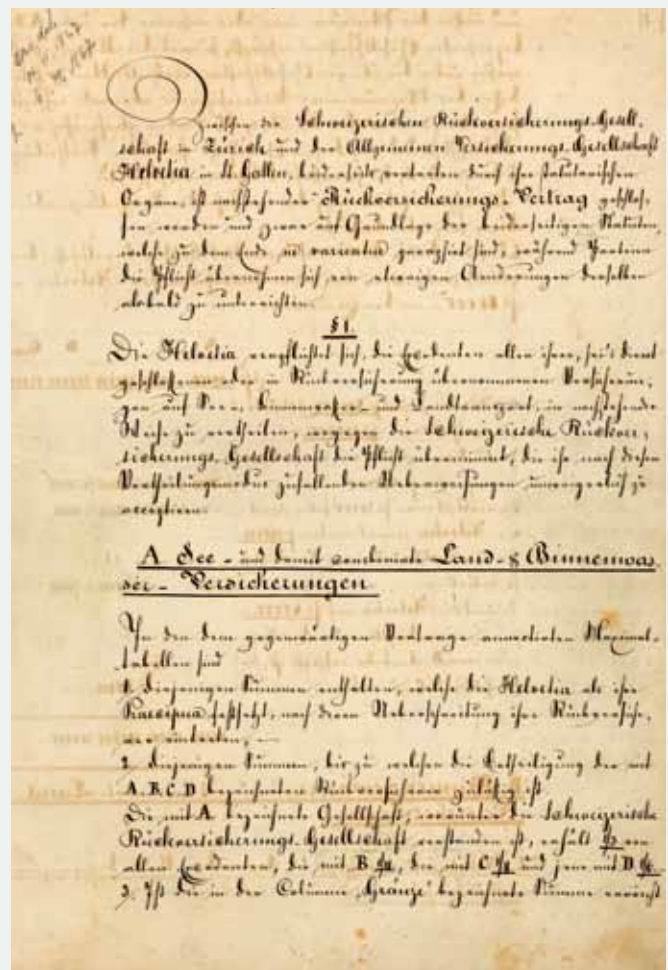 Zwischen der Schweizerischen Rückversicherungs-Gesell-
schaft in Zürich und der Allgemeinen Versicherungs-Gesellschaft
Helvetia in St. Gallen, beiderseits vertreten durch ihre statutarischen
Organe, ist nachstehender Rückversicherungs-Vertrag geschlos-
sen worden und zwar auf Grundlage der beiderseitigen Statuten,
welche zu dem Ende ne varietur paraphirt sind, während Parteien
die Pflicht übernehmen sich von etwaigen Aenderungen derselben
alsbald zu unterrichten.
§ 1.
Die Helvetia verpflichtet sich, die Excedenten aller ihrer, sei's direct
geschlossenen oder in Rückversicherung übernommenen Versicherun-
gen auf Seen-, Binnenwasser- und Landtransport, in nachstehender
Weise zu vertheilen, wogegen die Schweizerische Rückver-
sicherungs-Gesellschaft die Pflicht übernimmt, die ihr nach diesem
Vertheilungsmodus zufallenden Ueberweisungen unweigerlich zu
acceptiren.
A See- und damit combinirte Land- & Binnenwas
ser-Versicherungen.
In den dem gegenwärtigen Vertrage annectirten Maximal-
tabellen sind
1. diejenigen Summen enthalten, welche die Helvetia als ihr
Praecipua festsetzt, nach deren Ueberschreitung ihre Rückversiche-
rer eintreten, —
2. diejenigen Summen, bis zu welchen die Betheiligung der mit
A. B. C. D bezeichneten Rückversicherer zulässig ist.
Die mit A bezeichnete Gesellschaft, worunter die Schweizerische
Rückversicherungs-Gesellschaft verstanden ist, erhält von
allen Excedenten, die mit B, die mit C und jene mit D
3. Ist die in der Columne "Gränze" bezeichnete Summe erreicht